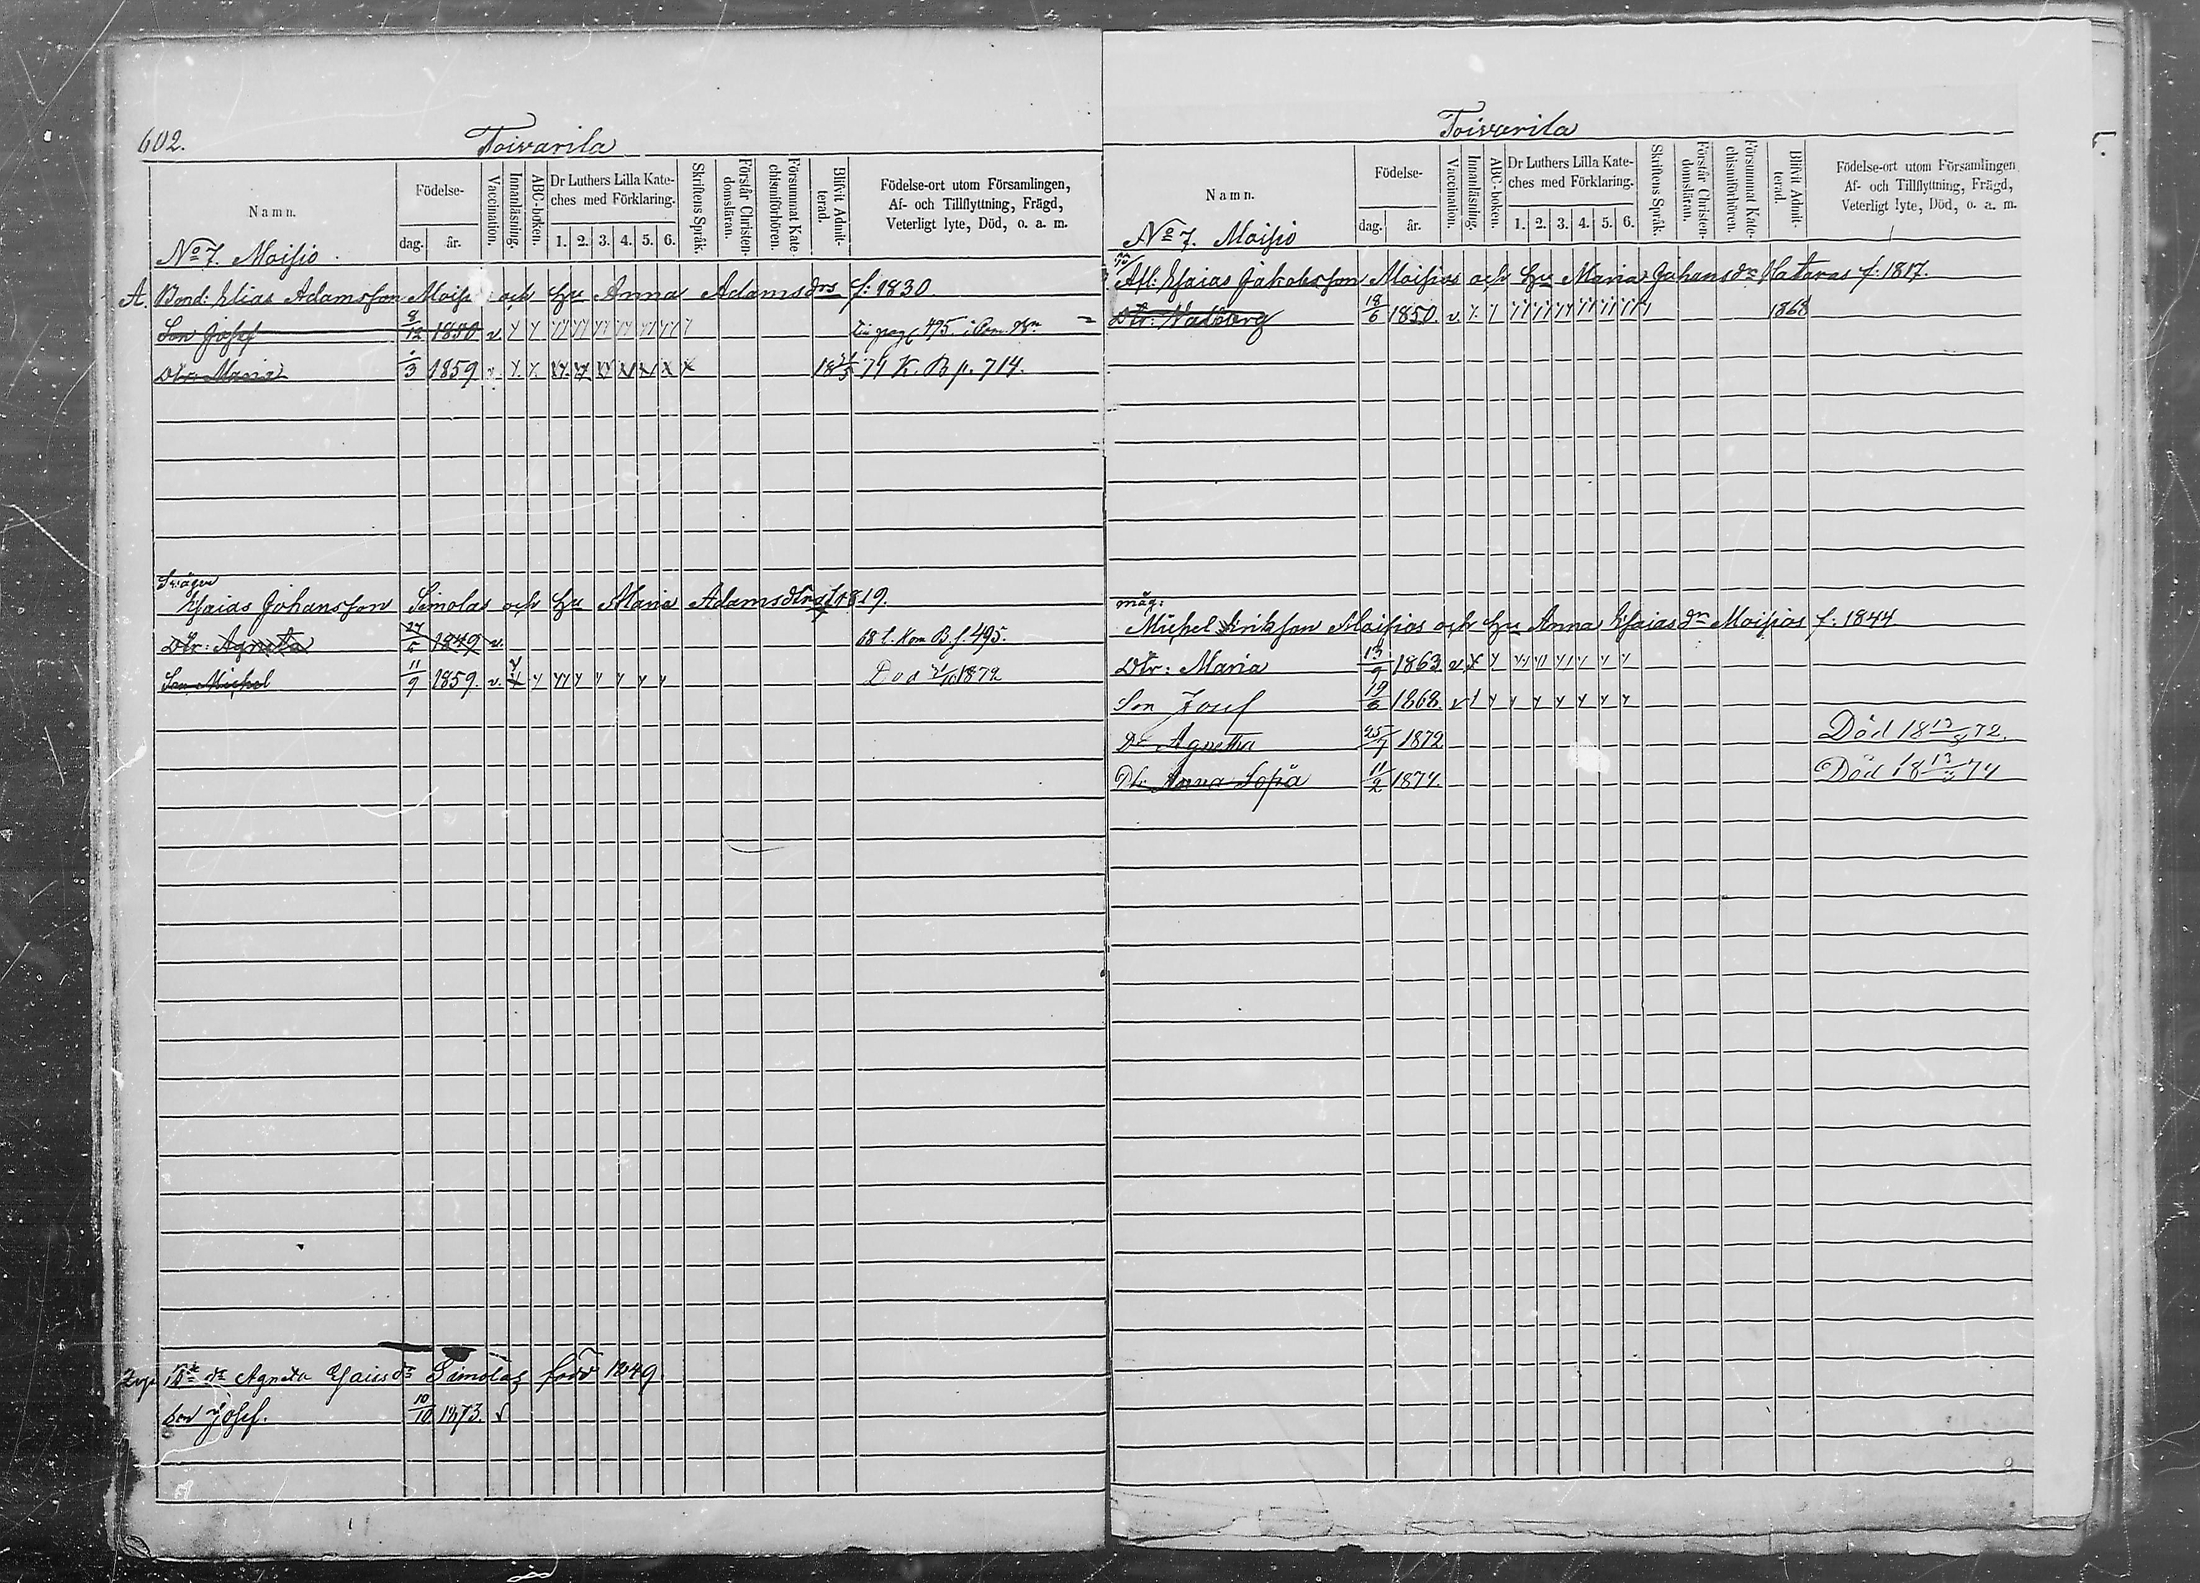 602.
Toivarila
Namn.
Födelse-
dag. år.
Vaccination.
Innanläsning.
ABC-boken.
Dr Luthers Lilla Kate-
ches med Förklaring.
1. 2. 3. 4. 5. 6.
Skriftens Språk.
Förstår Christen-
domsläran.
Försummat Kate-
chismiförhören.
Blifvit Admit-
terad.
Födelse-ort utom Församlingen,
Af- och Tillflyttning, Frägd,
Veterligt lyte, Död, o. a. m.
No 7. Moisio
A. Bond: Elias Adamsson Moisi och Hu Anna Adamsdrs f. 1830
Son Josef 8/12 1850 v
Dtr: Maria /3 1859 v 18 74 K. B p. 714.
Svåger
Esaias Johansson Simolas och Hu Maria Adamsdtr f. 1819.
Dtr: Agneta 27/6 1849 v. 68 l. Kom B. f. 495.
Son Michel 11/9 1859. v. Död 1872
Agneta Esaiasdr Simolas född 1849
Son Josef. 10/10 1873. v
Toivarila
Namn.
Födelse-
dag. år.
Vaccination.
Innanläsning.
ABC-boken.
Dr Luthers Lilla Kate-
ches med Förklaring.
1. 2. 3. 4. 5. 6.
Skriftens Språk.
Förstår Christen-
domsläran.
Försummat Kate-
chismiförhören.
Blifvit Admit-
terad.
Födelse-ort utom Församlingen
Af- och Tillflyttning, Frägd,
Veterligt lyte, Död, o. a. m.
No 7. Moisio
Afl: Esaias Jakobsson Moisios och Hu Maria Johansdr Hataras f. 1817.
Dtr: Walborg 18/6 1850. v. 1868
måg:
Michel Eriksson Moisios och Hu Anna Esaiasdr Moisios f. 1844
Dtr: Maria 13/9 1863 v
Son Josef 19/6 1868. v
Dr Agnetha 25/7 1872 Död 18 13/8 72.
Dtr Anna Sofia 11/2 1874. Död 18 74